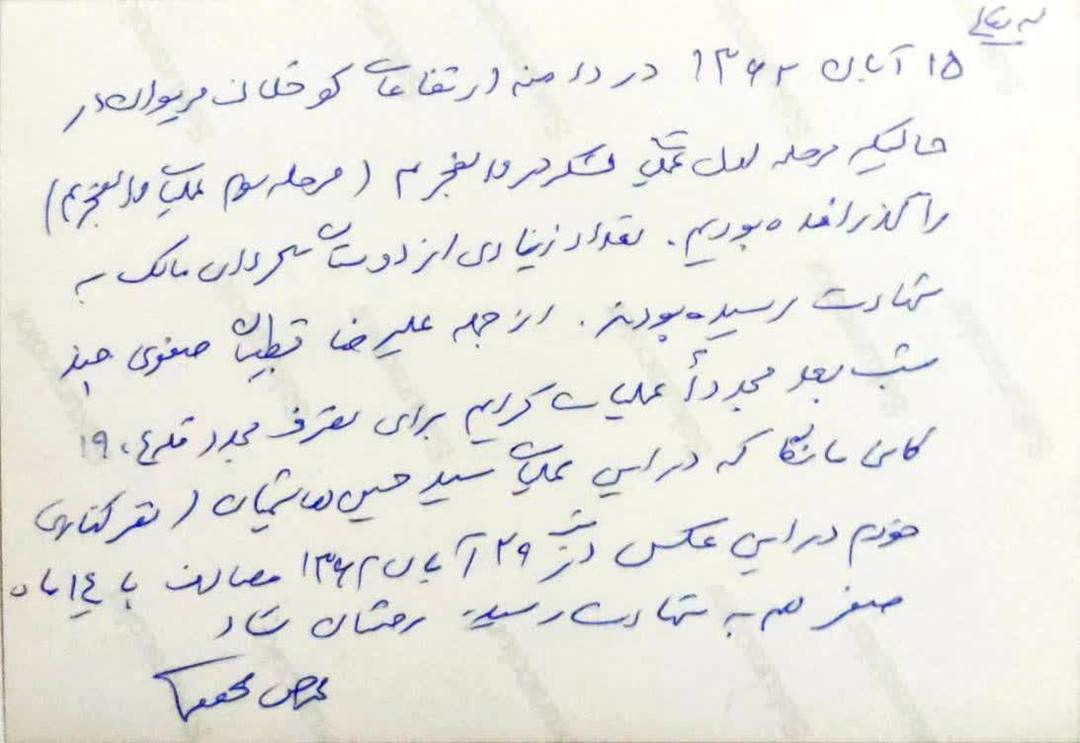 ۱۵ آبان ۱۳۶۲ در دامنه ارتفاعات کوه خلوزان مریوان در
حالیکه مرحله اول عملیات لشکر در والفجر ۴ (مرحله سوم عملیات والفجر ۴)
را گذرانده بودیم. تعداد زیادی از دوستان گردان مالک به
شهادت رسیده بودند. از جمله علیرضا قطبیان صفوی چند
شب بعد مجدداً عملیات کردیم برای تصرف مجدد قله ۱۹۰۴
کانی مانگا که در این عملیات سید حسین هاشمیان (نفر کناری
خودم در این عکس در شب ۲۹ آبان ۱۳۶۲ مصادف با ۱۴ ماه
صفر هم به شهادت رسید. روحشان شاد